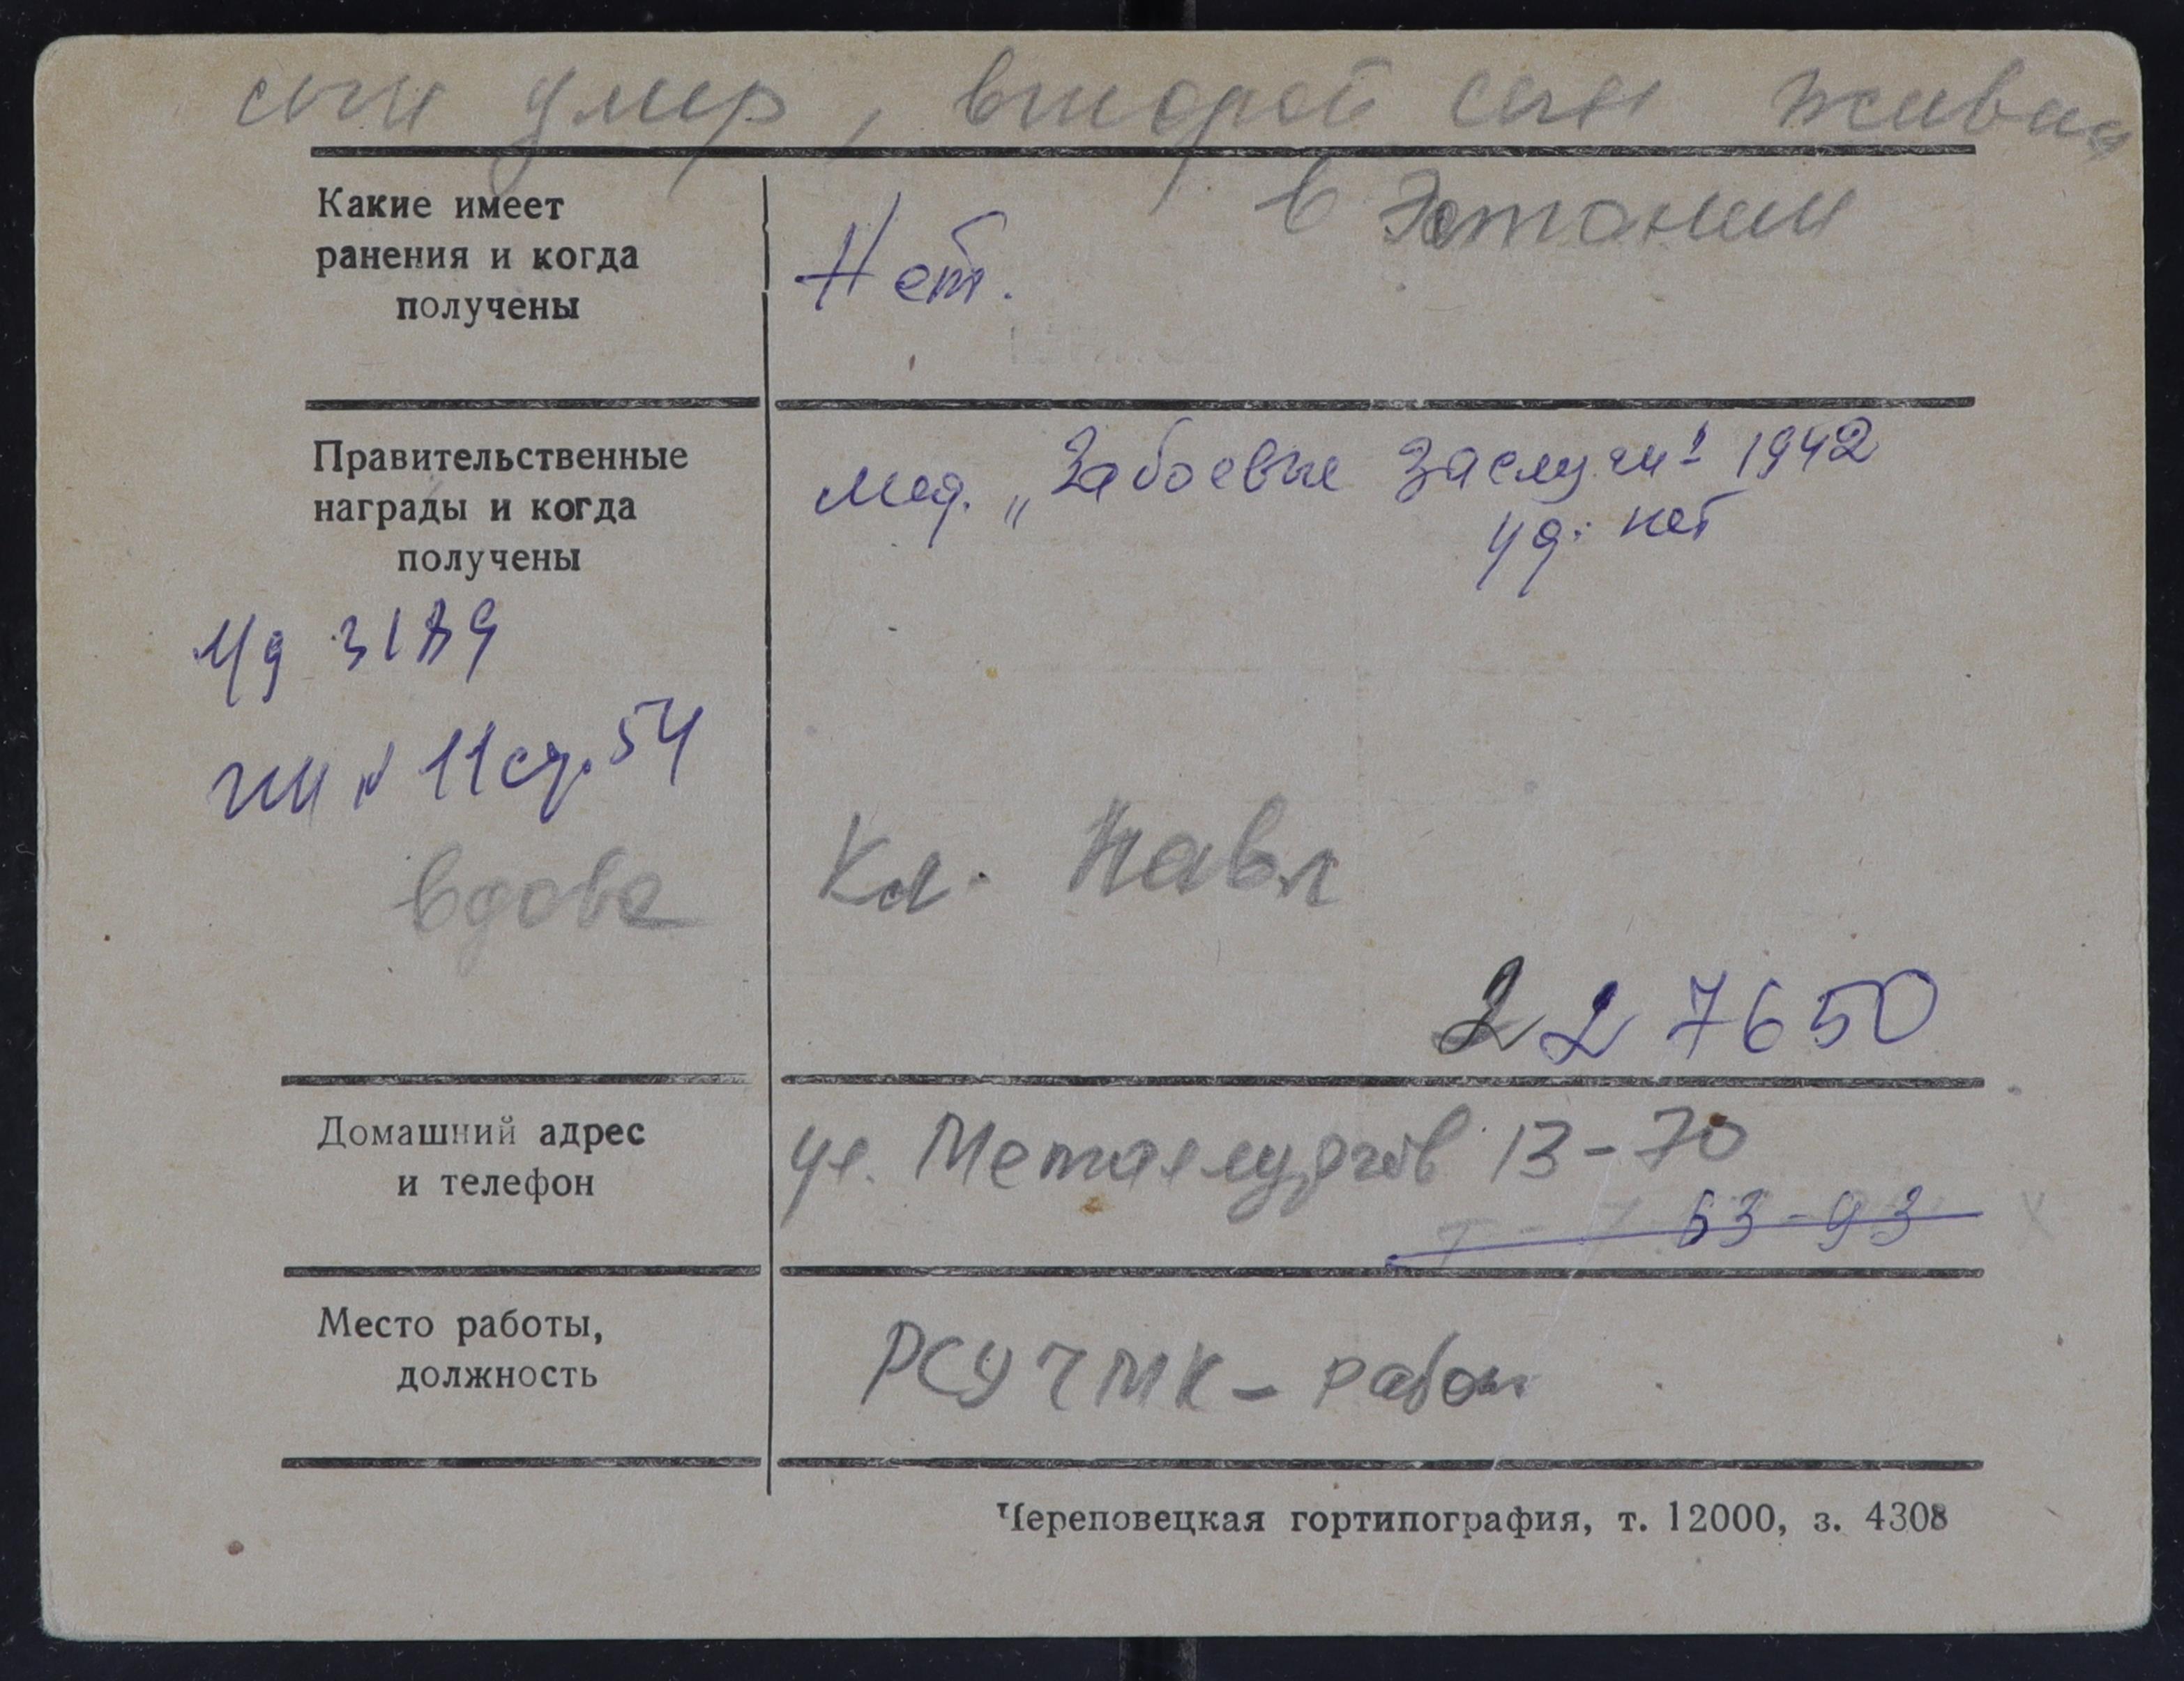 сын умер, второй сын живет
в Эстонии
Какие имеет
ранения и когда
получены
Нет.
Правительственные
награды и когда
получены
мед. „За боевые заслуги" 1942
уд. нет
Уд 3189
стр. 54
вдова
Кл. Павл
2 2 7650
Домашний адрес
и телефон
ул. Металлургов 13-70
Т-7 63-93
Место работы,
должность
РСУ ЧМК - рабоч
Череповецкая гортипография, т. 12000, з. 4308